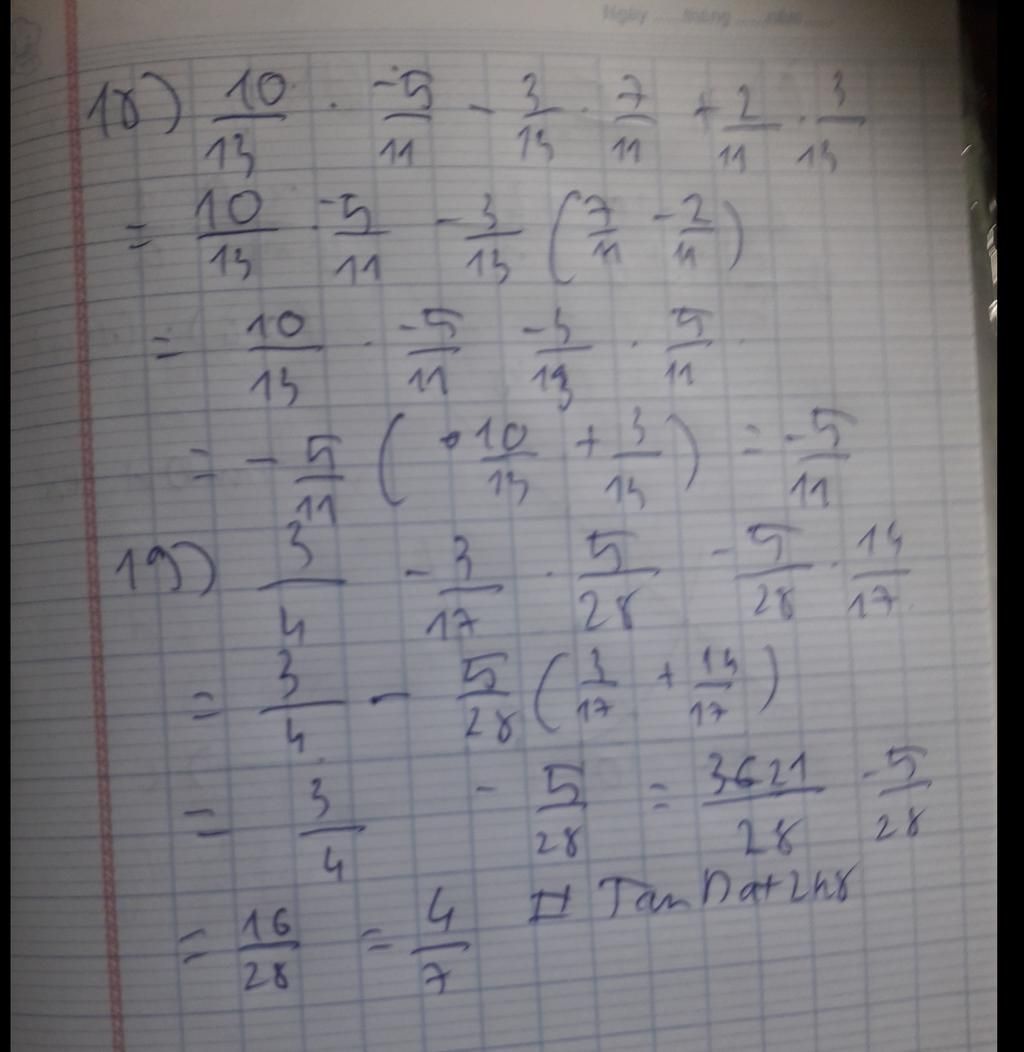 Ngày ..... tháng ..... năm .....
18) 10/13 . -5/11 - 3/13 . 7/11 + 2/11 . 3/13
= 10/13 . -5/11 - 3/13 (7/11 - 2/11)
= 10/13 . -5/11 - 3/13 . 5/11
= - 5/11 (10/13 + 3/13) = -5/11
19) 3/4 - 3/17 . 5/28 - 5/28 . 14/17
= 3/4 - 5/28 (3/17 + 14/17)
= 3/4 - 5/28 = 3621/28 - 5/28
= 16/28 = 4/7 # TanDat2k8